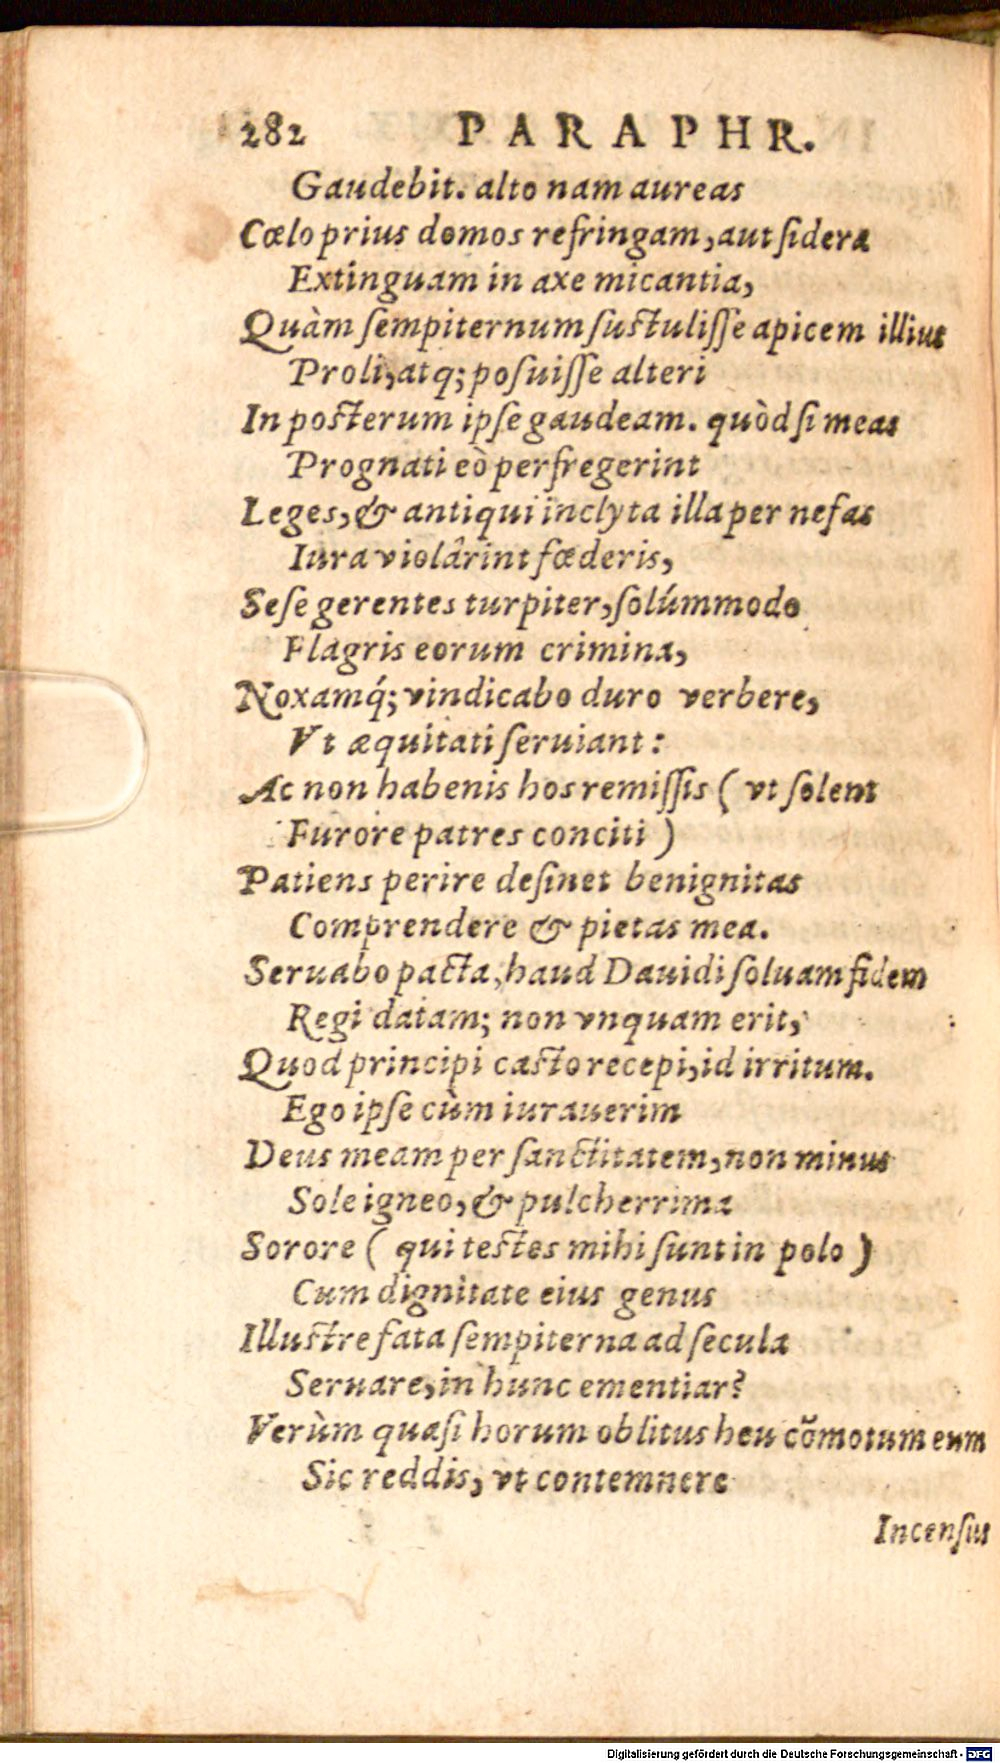 282 PARAPHR.
Gaudebit. alto nam aureas
Cœlo prius domos refringam, aut ſidera
Extinguam in axe micantia,
Quàm ſempiternum ſuſtuliſſe apicem illius
Proli, atq; poſuiſſe alteri
In poſterum ipſe gaudeam. quòd ſi meas
Prognati eò perfregerint
Leges, & antiqui inclyta illa per nefas
Iura violârint fœderis,
Seſe gerentes turpiter, ſolúmmodo
Flagris eorum crimina,
Noxamq́; vindicabo duro verbere,
Vt æquitati ſeruiant:
Ac non habenis hos remiſſis ( vt ſolent
Furore patres conciti )
Patiens perire deſinet benignitas
Comprendere & pietas mea.
Seruabo pacta, haud Dauidi ſoluam fidem
Regi datam; non vnquam erit,
Quod principi caſto recepi, id irritum.
Ego ipſe cùm iurauerim
Deus meam per ſanctitatem, non minus
Sole igneo, & pulcherrima
Sorore ( qui teſtes mihi ſunt in polo )
Cum dignitate eius genus
Illuſtre fata ſempiterna ad ſecula
Seruare, in hunc ementiar?
Verùm quaſi horum oblitus heu cõmotum eum
Sic reddis, vt contemnere
Incenſus
Digitalisierung gefördert durch die Deutsche Forschungsgemeinschaft - DFG